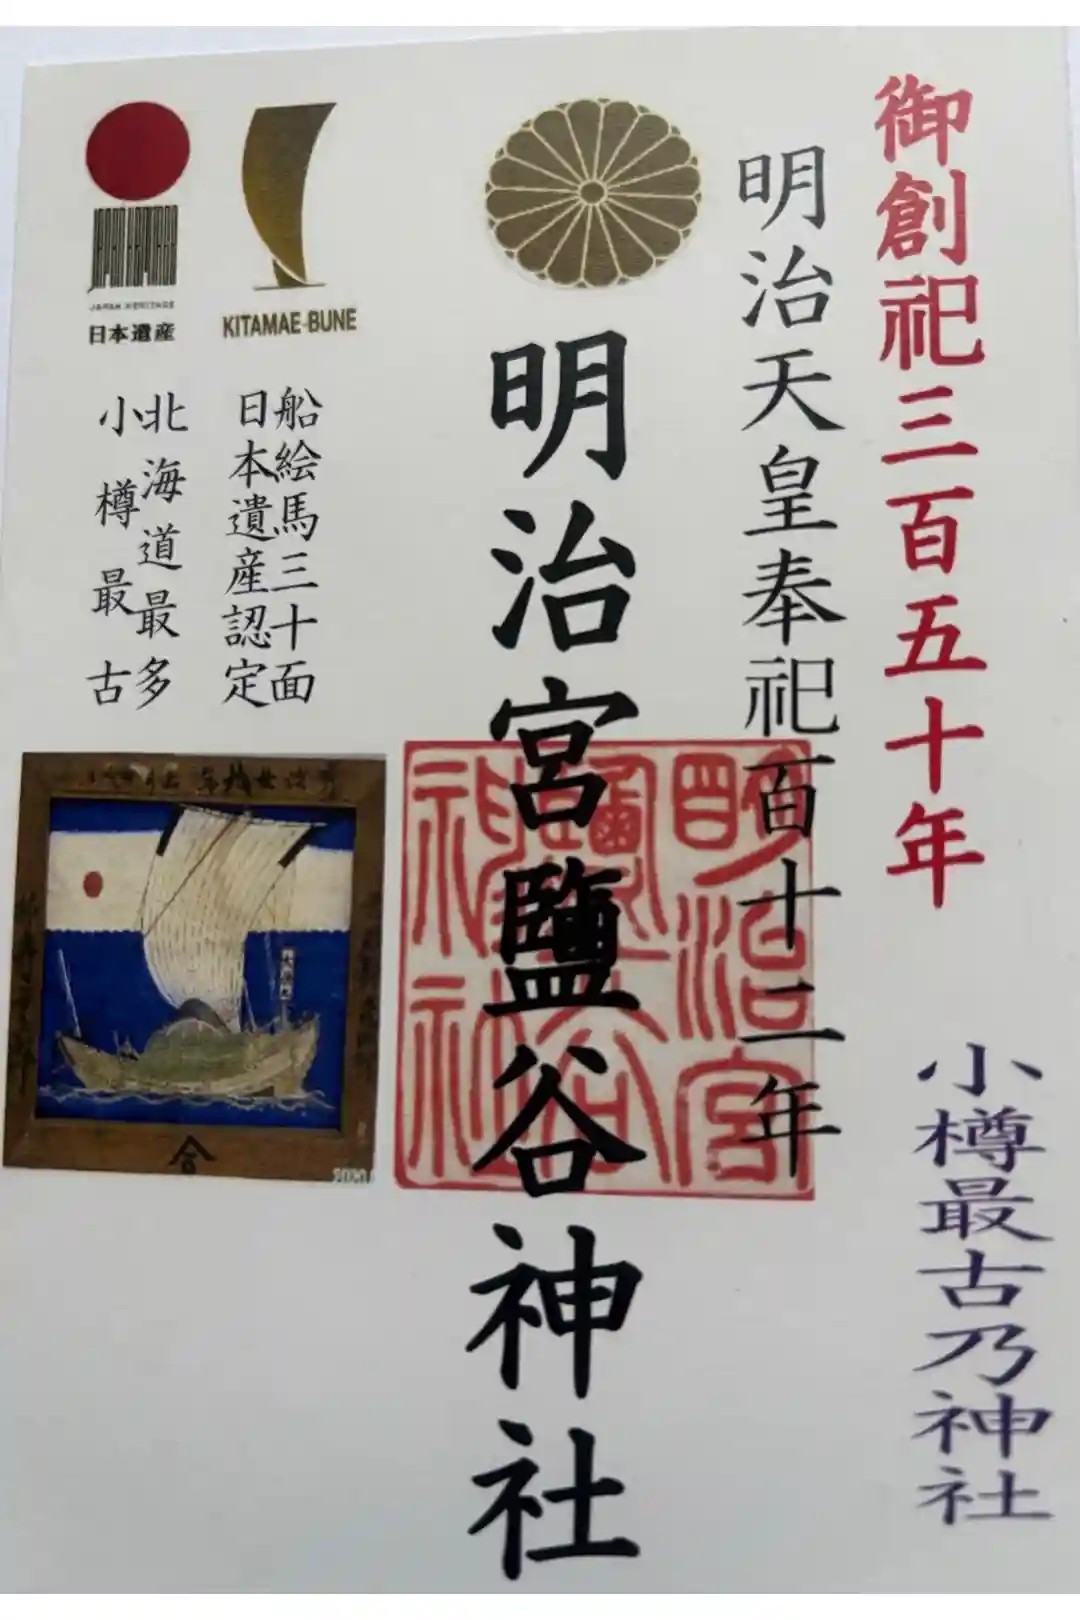 御創祀三百五十年
小樽最古乃神社
明治天皇奉祀百十二年
明治宮鹽谷神社
明治宮
鹽谷
神社
KITAMAE-BUNE
船絵馬三十面
日本遺産認定
JAPAN HERITAGE
日本遺産
北海道最多
小樽最古